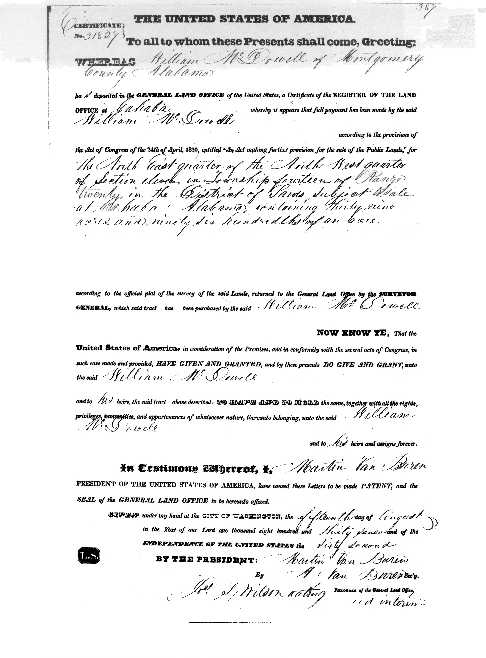 367
THE UNITED STATES OF AMERICA.
CERTIFICATE
No. 31827
To all to whom these Presents shall come, Greeting:
WHEREAS William McDowell of Montgomery
County Alabama
ha s deposited in the GENERAL LAND OFFICE of the United States, a Certificate of the REGISTER OF THE LAND
OFFICE at Cahaba whereby it appears that full payment has been made by the said
William McDowell
according to the provisions of
the Act of Congress of the 24th of April, 1820, entitled "An Act making further provision for the sale of the Public Lands," for
the North East quarter of the North West quarter
of Section eleven in Township fourteen of Range
twenty in the District of Lands subject to sale
at Cahaba Alabama containing thirty nine
acres and ninety six hundredths of an acre
according to the official plat of the survey of the said Lands, returned to the General Land Office by the SURVEYOR
GENERAL, which said tract has been purchased by the said William McDowell
NOW KNOW YE, That the
United States of America, in consideration of the Premises, and in conformity with the several acts of Congress, in
such case made and provided, HAVE GIVEN AND GRANTED, and by these presents DO GIVE AND GRANT, unto
the said William McDowell
and to his heirs, the said tract above described: TO HAVE AND TO HOLD the same, together with all the rights,
privileges, immunities, and appurtenances of whatsoever nature, thereunto belonging, unto the said William
McDowell
and to his heirs and assigns forever.
In Testimony Whereof, I, Martin Van Buren
PRESIDENT OF THE UNITED STATES OF AMERICA, have caused these Letters to be made PATENT, and the
SEAL of the GENERAL LAND OFFICE to be hereunto affixed.
GIVEN under my hand at the CITY OF WASHINGTON, the fifteenth day of August
in the Year of our Lord one thousand eight hundred and thirty seven and of the
INDEPENDENCE OF THE UNITED STATES the sixty second
L.S.
BY THE PRESIDENT: Martin Van Buren
By A. Van Buren Sec'y.
Jos. S. Wilson acting RECORDER of the General Land Office,
ad interim